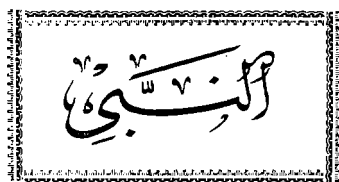 النَّبِيّ